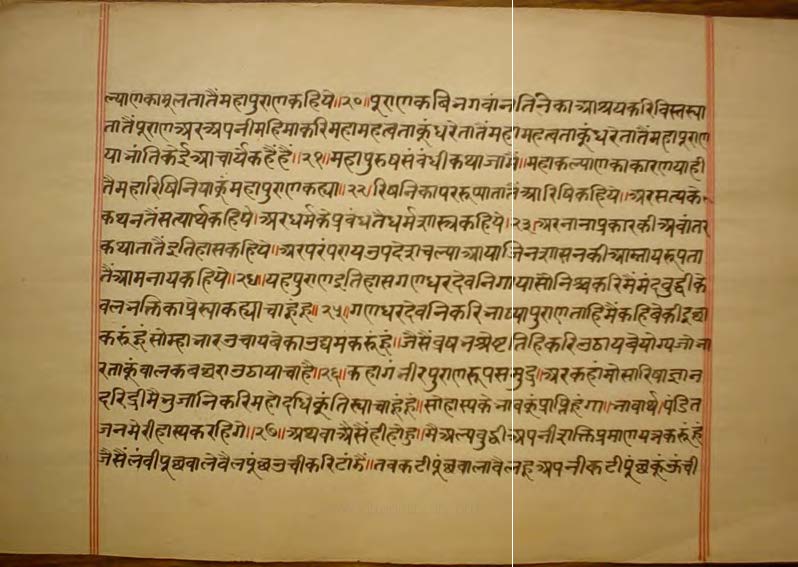 ल्याणका मूलतातैं महापुराण कहिये॥२०॥ पुराण कबि नगवांनतिनिका आश्रय करि विस्तस्या
तातैं पूराण अर अपनी महिमा करि महा महत्वताकूं धरे तातैं महा महत्वताकूं धरे तातैं महापूराण
या नांति केई आचार्य कहैं हैं॥२१॥ महापुरुष संबंधी कथा जामैं॥ महाकल्याणका कारण याही
तैं महारिषिनि याकूं महापुराण कह्या॥२२॥ रिषनिका पररुप्या तातैं आरिषि कहिये॥ अर सत्य के
कथनतैं सत्यार्थ कहिये॥ अर धर्मके प्रबंधतै धर्मशास्त्र कहिये॥२३॥ अर नाना प्रकार की अवांतर
कथा तातैं इतिहास कहिये॥ अर परंपराय उपदेश चल्या आया जिनशासनकी आम्नाय रुपता
तैं आमनाय कहिये॥२४॥ यह पुराण इतिहास गणधर देवनि गाया सो निश्चकरि मैं मंदबुद्दी के
वल नक्तिका प्रेस्या कह्या चाहूं हूं॥२५॥ गणधर देवनिकरि नाष्या पुराण ताहि मैं कहिवे की इच्छा
करूं हूं सो म्हा नार उचायवेका उद्यम करूं हूं॥ जैसैं व्रषनश्रेष्टतिहिकरि उठायवे योग्य जो ना
र ताकूं बालक बच्चरा उठाया चाहै॥२६॥ कहा गंनीर पुराण रुप समुद्र॥ अर कहां मो सारिषा ज्ञान
दरिद्दी मै नुजानिकरि महोदधिकूं तिस्या चाहूं हूं॥ सो हास्यके नावकूं प्राप्ति हूंगा॥ नावार्थ॥ पंडित
जन मेरी हास्य करहिगे॥२७॥ अथवा अैसैं ही होहु॥ मै अल्पबुद्दी अपनी शक्ति प्रमाण यत्न करूं हूं
जैसैं लंवी पूछवाले वैल पूंछ उची करि टांमैं॥ तव कटी पूंछवाला वैल हू अपनी कटी पूंछकूं ऊंची